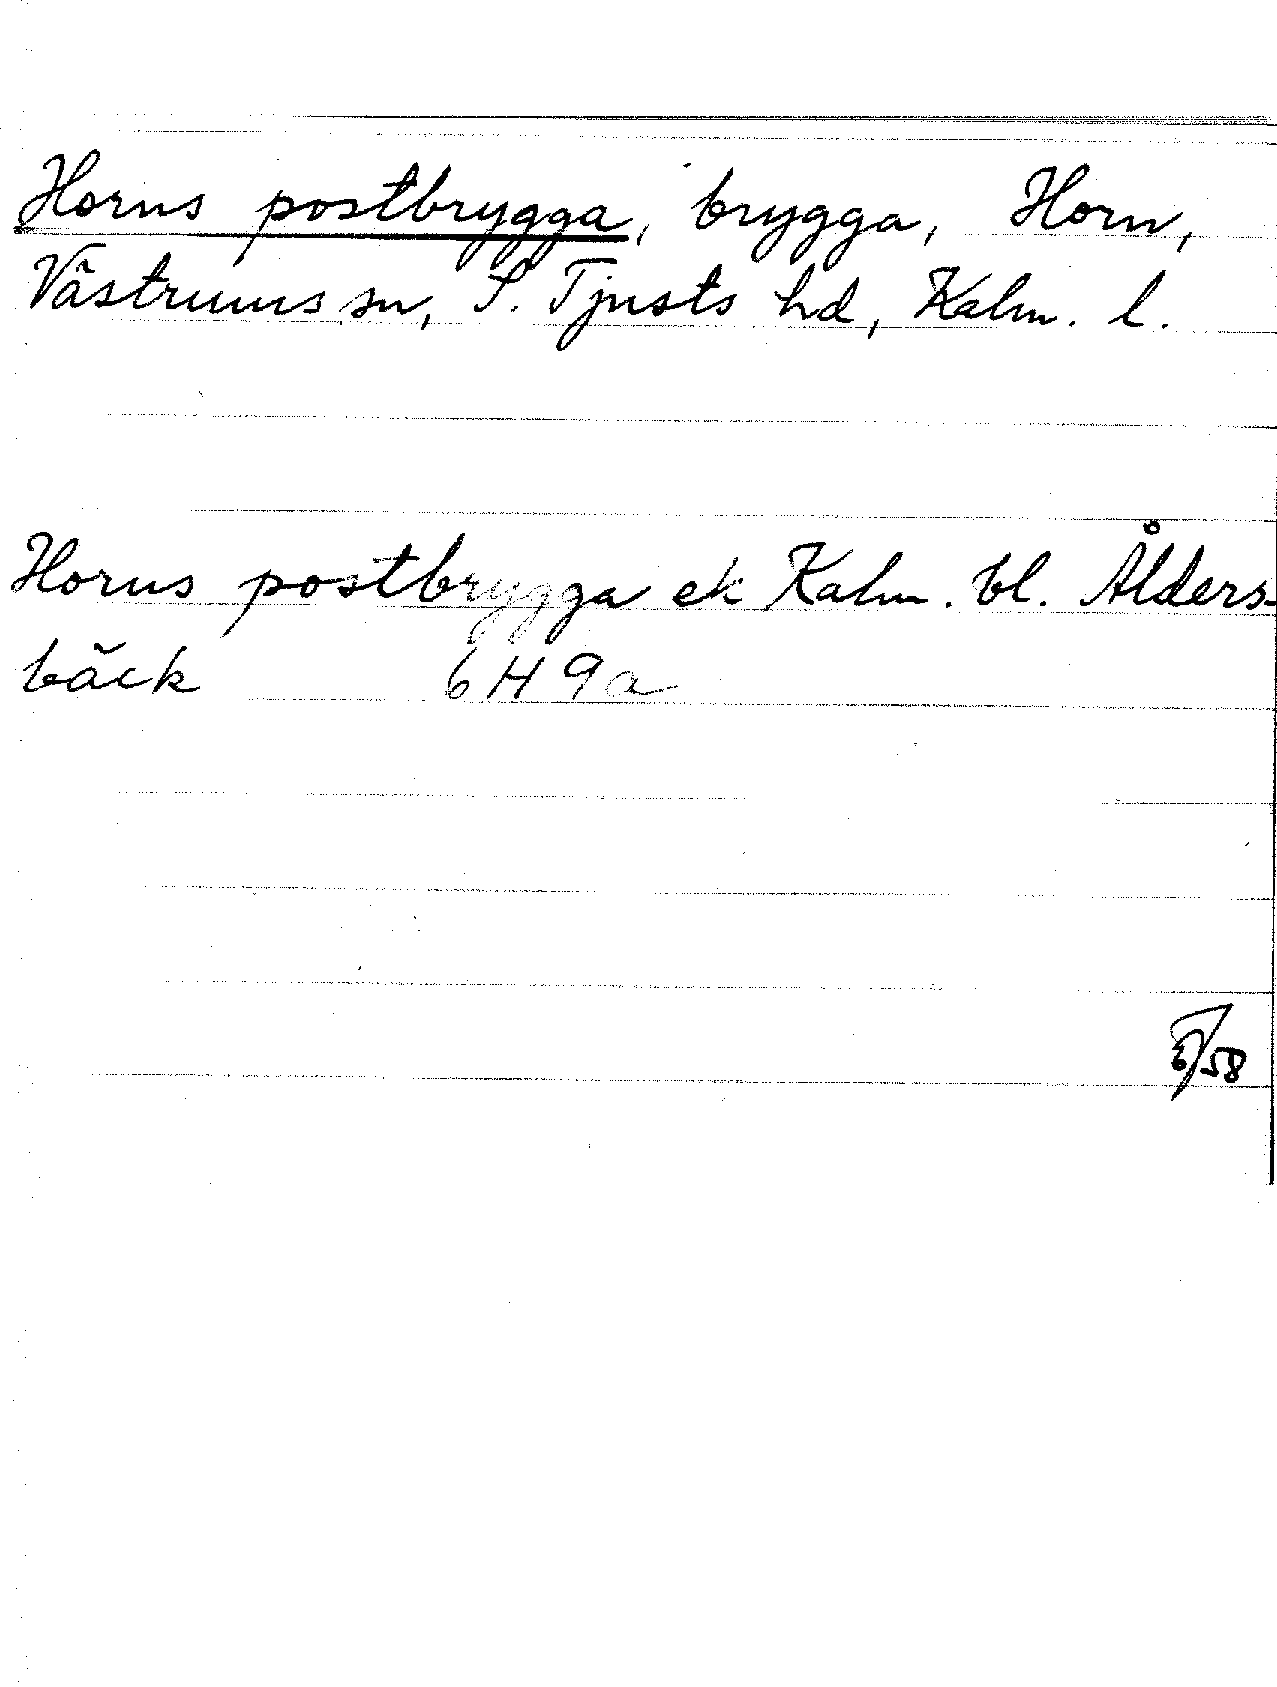 Horns postbrygga, brygga, Horn,
Västrums sn, S. Tjusts hd, Kalm. l.
Horns postbrygga ek Kalm. bl. Ålders-
bäck 6H 9a
/58